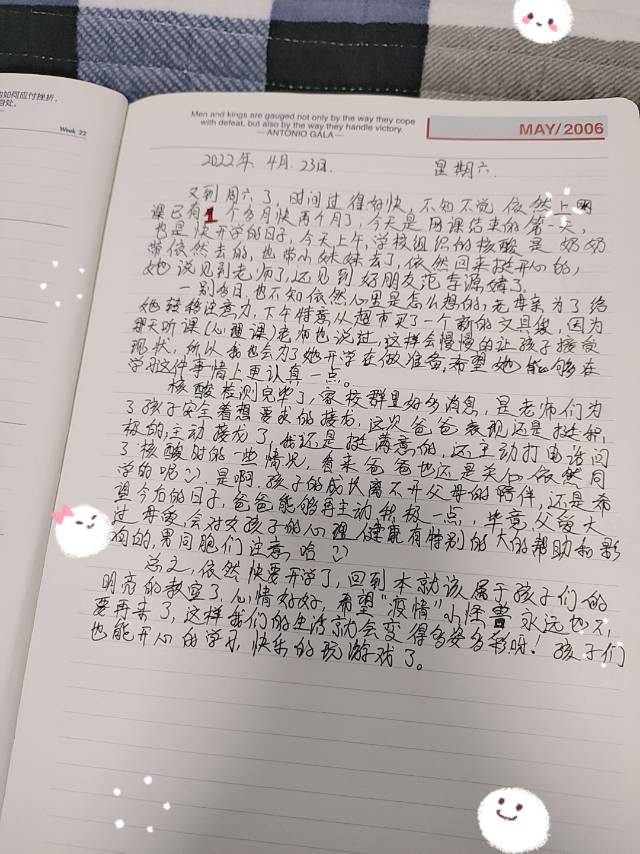 如何应付挫折,
自处。
Week 22
Men and kings are gauged not only by the way they cope
with defeat, but also by the way they handle victory.
—ANTONIO GALA—
MAY/2006
2022年 4月 23日. 星期六.
又到周六了,时间过得好快,不知不觉依然上网
课已有1个多月快两个月了,今天是网课结束的第一天,
也是快开学的日子,今天上午,学校组织的核酸是奶奶
带依然去的,也带小妹妹去了,依然回来挺开心的,
她说见到老师了,还见到好朋友范李源婧了.
一别多日,也不知依然心里是怎么想的,老母亲为了给
她转移注意力,下午特意从超市买了一个新的文具袋,因为
昨天听课(心理课)老师也说过,这样会慢慢的让孩子接受
现状,所以我也会为了她开学在做准备,希望她能够在
学习这件事情上更认真一点。
核酸检测完毕了,家校群里好多消息,是老师们为
了孩子安全着想要求的接龙,这次爸爸表现还是挺积
极的,主动接龙了,我还是挺满意的,还主动打电话问
了核酸时的一些情况,看来爸爸也还是关心依然同
学的呢:),是啊,孩子的成长离不开父母的陪伴,还是希
望今后的日子,爸爸能够再主动积极一点,毕竟,父爱大
过母爱,会对女孩子的心理健康有特别的大的帮助和影
响的,男同胞们注意哈:)
总之,依然快要开学了,回到本就该属于孩子们的
明亮的教室了,心情好好,希望"疫情"小怪兽永远也不
要再来了,这样我们的生活就会变得多姿多彩呀!孩子们
也能开心的学习,快乐的玩游戏了。